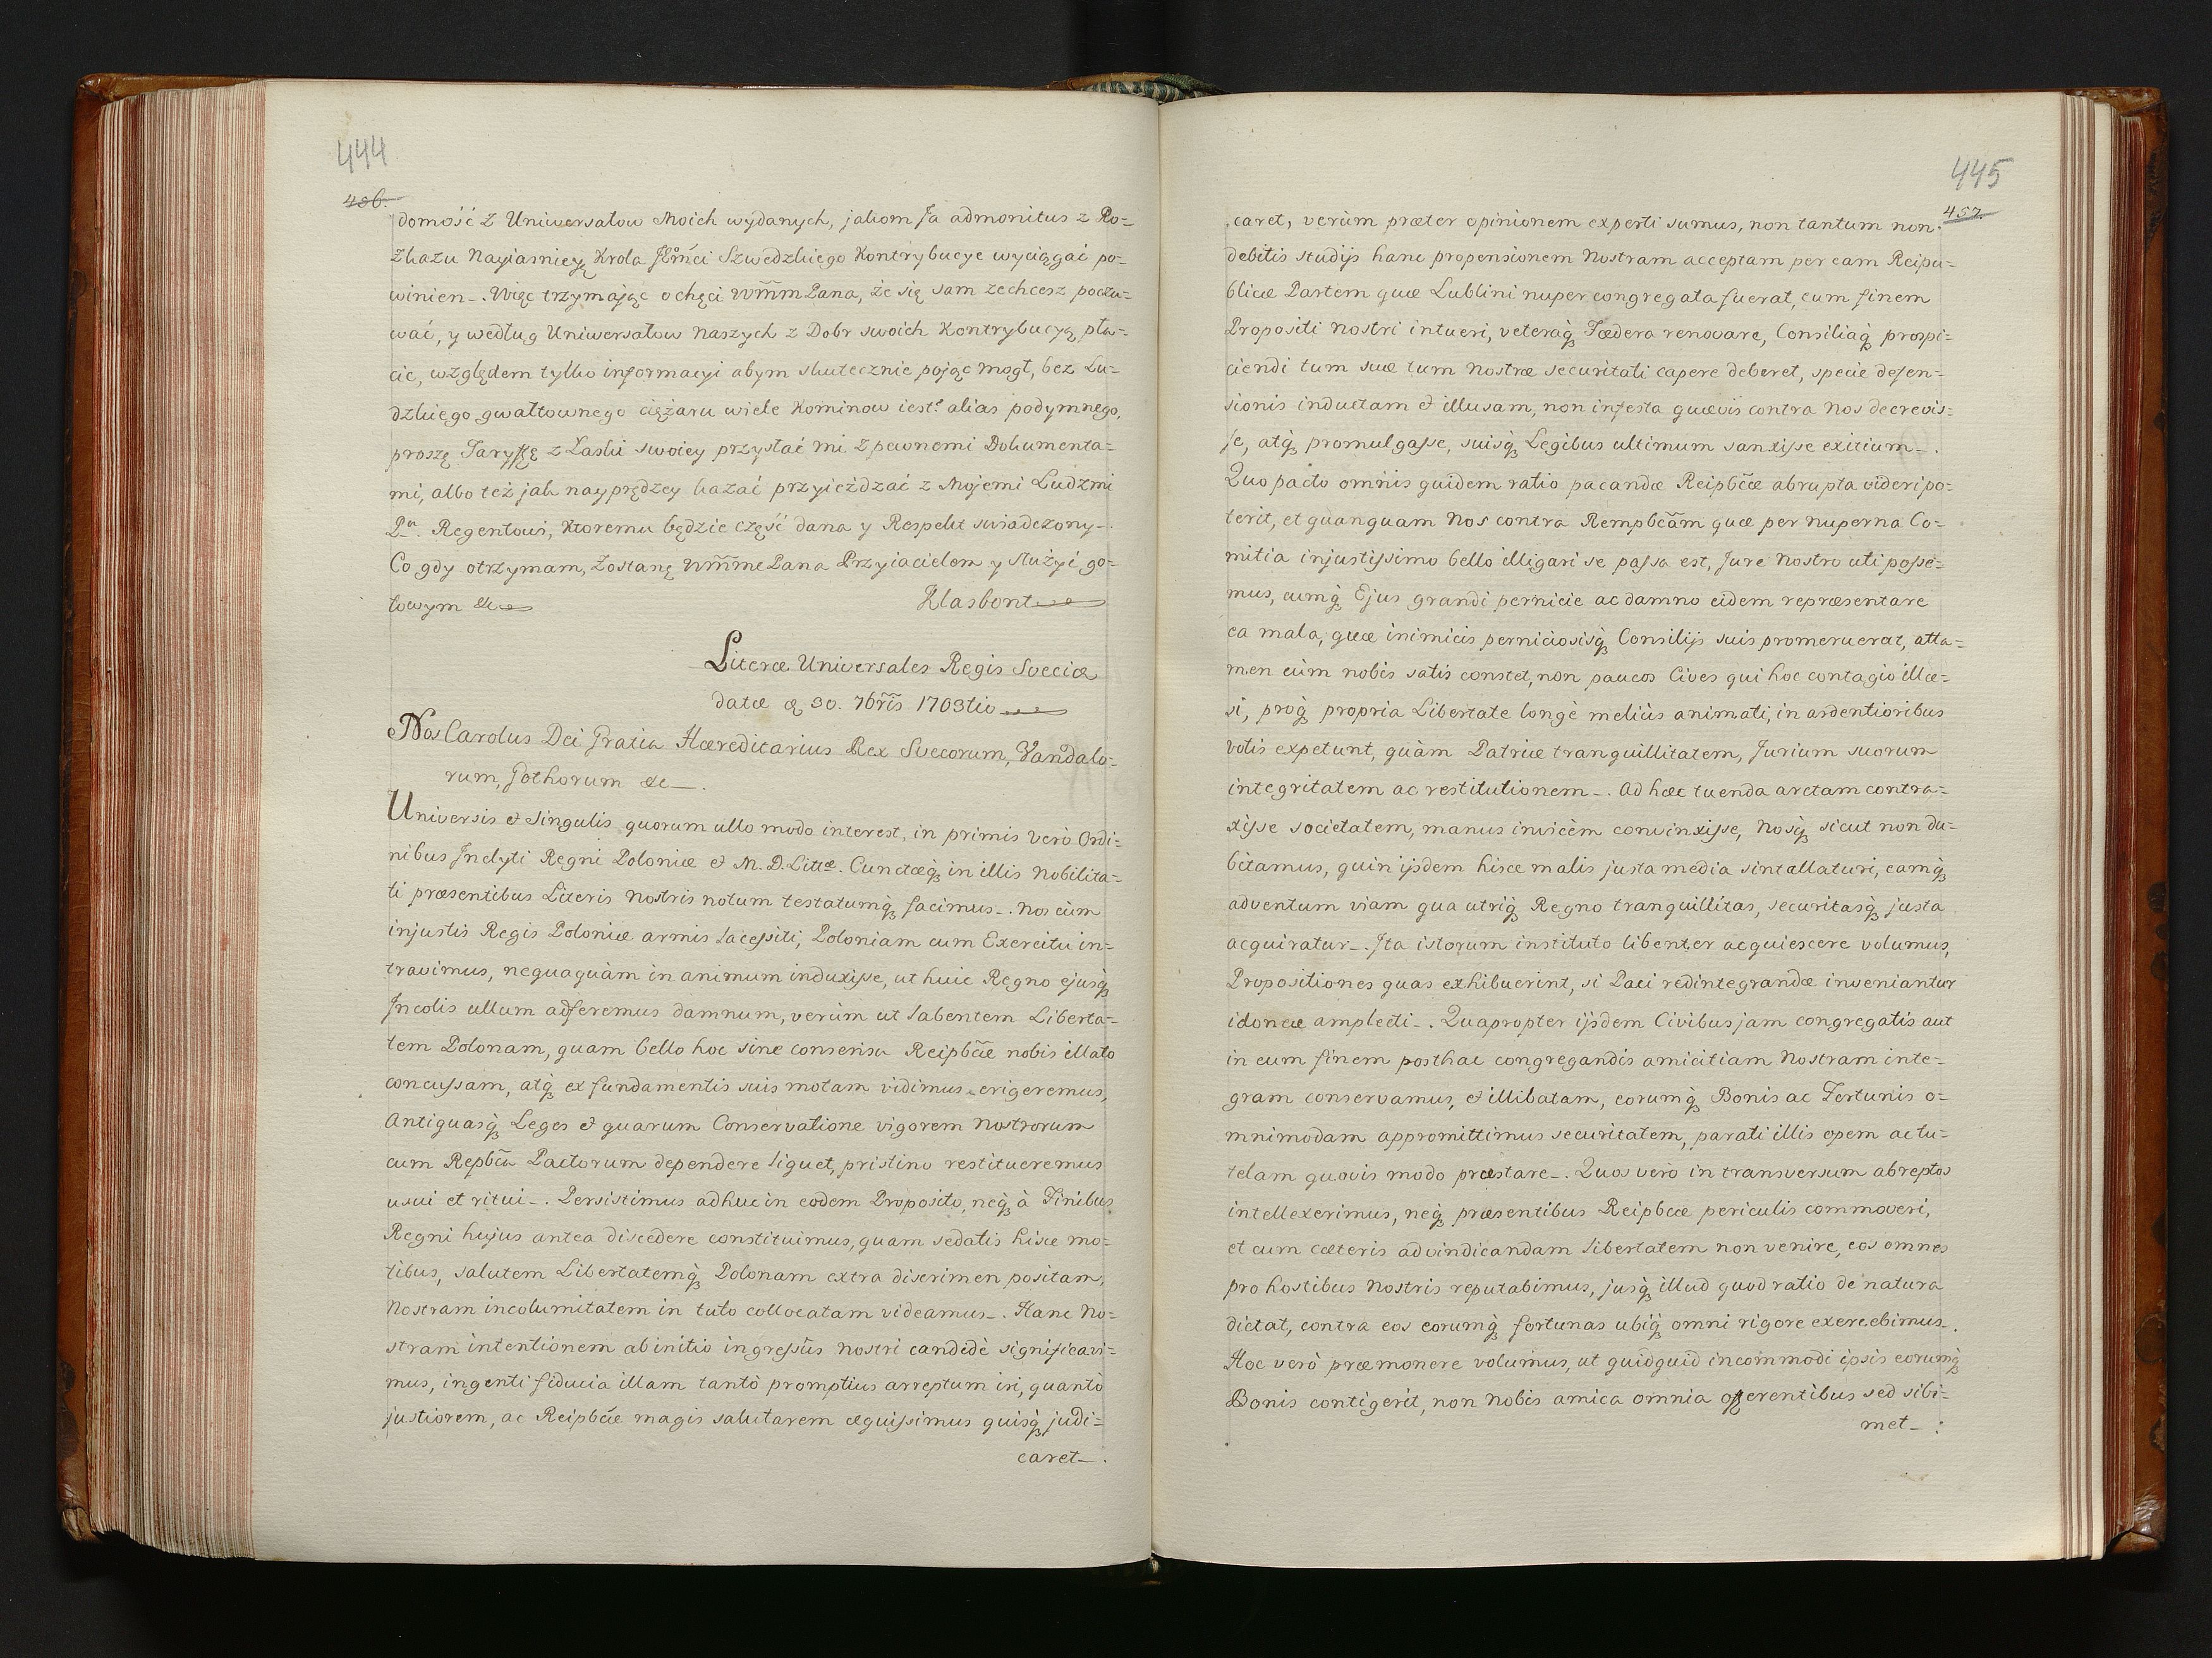 444
456.
domość z Uniwersałow Moich wydanych, jakom Ja admonitus z Ro=
zkazu Nayiasniey Krola JEmći Szwedzkiego Kontrybucye wyciągać po=
winien_. Więc trzymając o chęci WmmPana, że się sam zechcesz poczu=
wać, y według Uniwersałow Naszych z Dobr swoich Kontrybucyą pła=
cic, względem tylko informacyi abym skutecznie pojąc mogł, bez Lu=
dzkiego gwałtownego ciężaru wiele Kominow iest alias podymnego,
proszę Taryffę z Łaski swoiey przysłać mi z pewnemi Dokumenta=
mi, albo też jak nayprędzey kazać przyieżdzać z Mojemi Ludzmi
Pu. Regentowi, Ktoremu będzie część dana y Respekt swiadczony_.
Co gdy otrzymam, Zostanę WmmePana Przyiacielem y służyć go=
towym &c
Klasbont
Literæ Universales Regis Sveciæ
datæ æ 30. 7bris 1703tio
Nos Carolus Dei Gratia Hæreditarius Rex Svecorum, Vandalo=
rum, Gothorum &c_.
Universis et Singulis quorum ullo modo interest, in primis verò Ordi=
nibus Jnclyti Regni Poloniæ et M. D. Littæ. Cunctæq in illis Nobilita=
ti præsentibus Literis Nostris notum testatumq facimus_. Nos cùm
injustis Regis Poloniæ armis lacessiti, Poloniam cum Exercitu in=
travimus, nequaquàm in animum induxisse, ut huic Regno ejusq
Jncolis ullum adferemus damnum, verùm ut labentem Liberta=
tem Polonam, quam bello hoc sine consensu Reipbcæ nobis illato
concussam, atq ex fundamentis suis motam vidimus erigeremus,
Antiquasq Leges et quarum Conservatione vigorem Nostrorum
cum Repbca Pactorum dependere liquet, pristino restitueremus
usui et ritui_. Persistimus adhuc in eodem Proposito, neq à Finibus
Regni hujus antea discedere constituimus, quam sedatis hisce mo=
tibus, salutem Libertatemq Polonam extra discrimen positam,
Nostram incolumitatem in tuto collocatam videamus_. Hanc No=
stram intentionem ab initio ingressûs nostri candidè significavi=
mus, ingenti fiducia illam tantò promptius arreptum iri, quantò
justiorem, ac Reipbcæ magis salutarem æquissimus quisq judi=
caret_.
445
457.
caret, verùm præter opinionem experti sumus, non tantum non
debitis studijs hanc propensionem Nostram acceptam per eam Reipu=
blicæ Partem quæ Lublini nuper congregata fuerat, cum finem
Propositi nostri intueri, veteraq Fœdera renovare, Consiliaq prospi=
ciendi tum suæ tum Nostræ securitati capere deberet, specie defen=
sionis inductam et illusam, non infesta quævis contra Nos decrevis=
se, atq promulgasse, suisq Legibus ultimum sanxisse exitium_.
Quo pacto omnis quidem ratio pacandæ Reipbcæ abrupta videri po=
terit, et quanquam Nos contra Rempbcam quæ per nuperna Co=
mitia injustissimo bello illigari se passa est, Jure Nostro uti posse=
mus, cumq Ejus grandi pernicie ac damno eidem repræsentare
ea mala, quæ inimicis perniciosisq Consilijs suis promeruerat, atta=
men cùm nobis satis constet, non paucos Cives qui hoc contagio illæ=
si, proq propria Libertate longè meliùs animati, in ardentioribus
votis expetunt, quàm Patriæ tranquillitatem, Jurium suorum
integritatem ac restitutionem_. Ad hæc tuenda arctam contra=
xisse societatem, manus invicèm convinxisse, Nosq sicut non du=
bitamus, quin ijsdem hisce malis justa media sint allaturi, eamq
adventum viam qua utriq Regno tranquillitas, securitasq justa
acquiratur_. Jta istorum instituto libenter acquiescere volumus,
Propositiones quas exhibuerint, si Paci redintegrandæ inveniantur
idoneæ amplecti_. Quapropter ijsdem Civibus jam congregatis aut
in eum finem posthac congregandis amicitiam Nostram inte=
gram conservamus, et illibatam, eorumq Bonis ac Fortunis o=
mnimodam appromittimus securitatem, parati illis opem ac tu=
telam quovis modo præstare_. Quos verò in transversum abreptos
intellexerimus, neq præsentibus Reipbcæ periculis commoveri,
et cum cæteris ad vindicandam libertatem non venire, eos omnes
pro hostibus Nostris reputabimus, jusq illud quod ratio de natura
dictat, contra eos eorumq fortunas ubiq omni rigore exercebimus_.
Hoc verò præmonere volumus, ut quidquid incommodi ipsis eorumq
Bonis contigerit, non Nobis amica omnia offerentibus sed sibi=
met_: